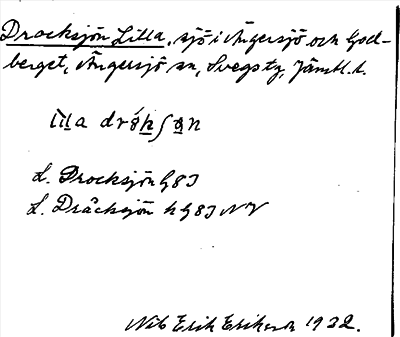 Drocksjön Lilla, sjö i Ängersjö och God-
berget, Ängersjö sn, Svegs tg, Jämtl. l.
lilla dró̱kʃɷn
L. Drocksjön G83
L. Dråcksjön h G83 NV
Nils Erik Eriksson 1932.